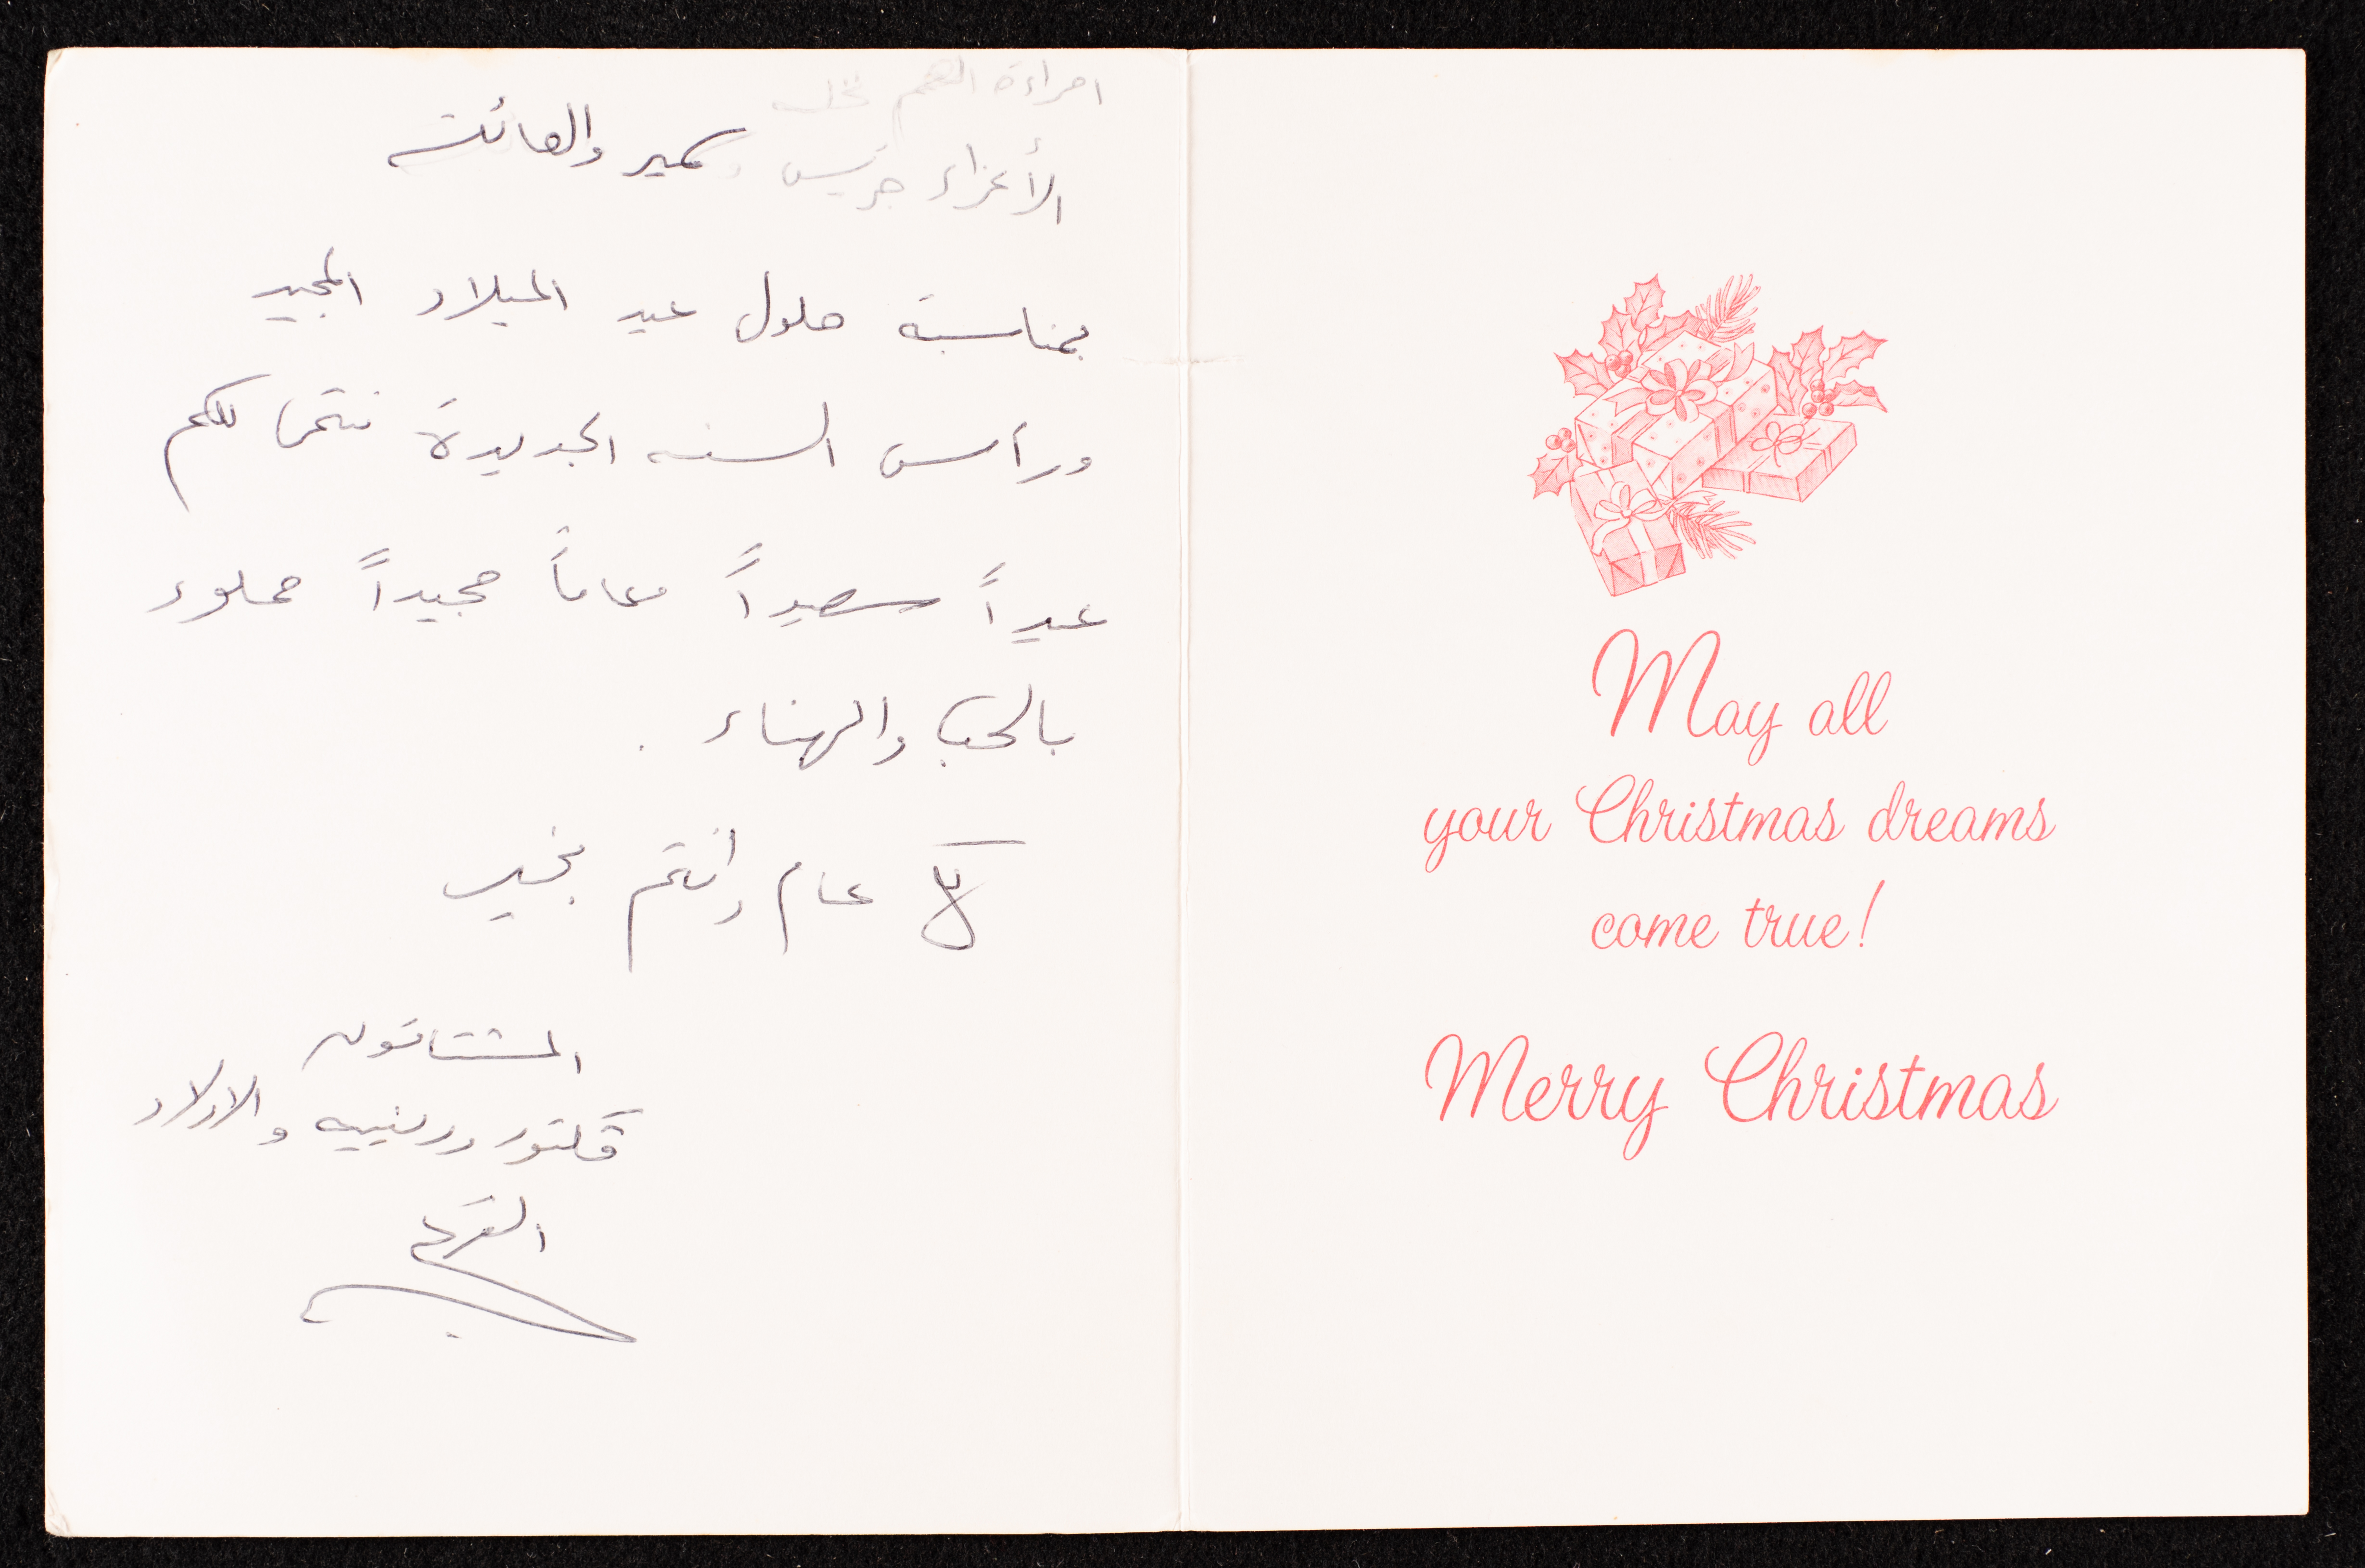 الأعزاء جريس وسمير والعائلة
بمناسبة حلول عيد الميلاد المجيد
ورأس السنه الجديدة نتمنا لكم
عيداً سعيداً وعاماً مجيداً مملوء
بالحب والهناء .
كل عام وانتم بخير
المشتاقون
والاولاد
May all
your Christmas dreams
come true!
Merry Christmas